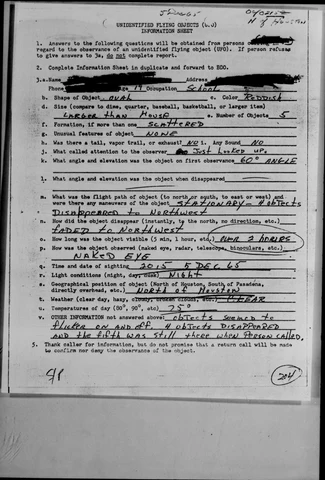 J 5 Dec 65
N of Houston
UNIDENTIFIED FLYING OBJECTS (U.O)
INFORMATION SHEET
1. Answers to the following questions will be obtained from persons
regard to the observance of an unidentified flying object (UFO). If person refuses
to give answers to 3a, do not complete report.
2. Complete Information Sheet in duplicate and forward to EOC.
3.a. Name Address
Phone Age 19 Occupation School
b. Shape of Object OVAL c. Color REDDISH
d. Size (compare to dime, quarter, baseball, basketball, or larger item)
LARGER THAN HOUSE e. Number of Objects 5
f. Formation, if more than one SCATTERED
g. Unusual features of object NONE
h. Was there a tail, vapor trail, or exhaust? NO i. Any Sound NO
j. What called attention to the observer Just Looked up.
k. What angle and elevation was the object on first observance 60° ANGLE
l. What angle and elevation was the object when disappeared
m. What was the flight path of object (to north or south, to east or west) and
were there any maneuvers of the object STATIONARY - 4 objects
DISAPPEARED to NORTHWEST
n. How did the object disappear (instantly, to the north, no direction, etc.)
FADED to NORTHWEST
o. How long was the object visible (5 min, 1 hour, etc.) OVER 2 HOURS
p. How was the object observed (naked eye, radar, telescope, binoculars, etc.)
NAKED EYE
q. Time and date of sighting 2015 5 DEC 65
r. Light conditions (night, day, dusk) NIGHT
s. Geographical position of object (North of Houston, South of Pasadena,
directly overhead, etc.) NORTH of HOUSTON
t. Weather (clear day, hazy, cloudy, broken clouds, etc.) CLEAR
u. Temperatures of day (80°, 90°, etc) 75°
v. OTHER INFORMATION not answered above: objects seemed to
flicker on and off. 4 objects DISAPPEARED
AND the fifth was still there when PERSON CALLED.
5. Thank caller for information, but do not promise that a return call will be made
to confirm nor deny the observance of the object.
204